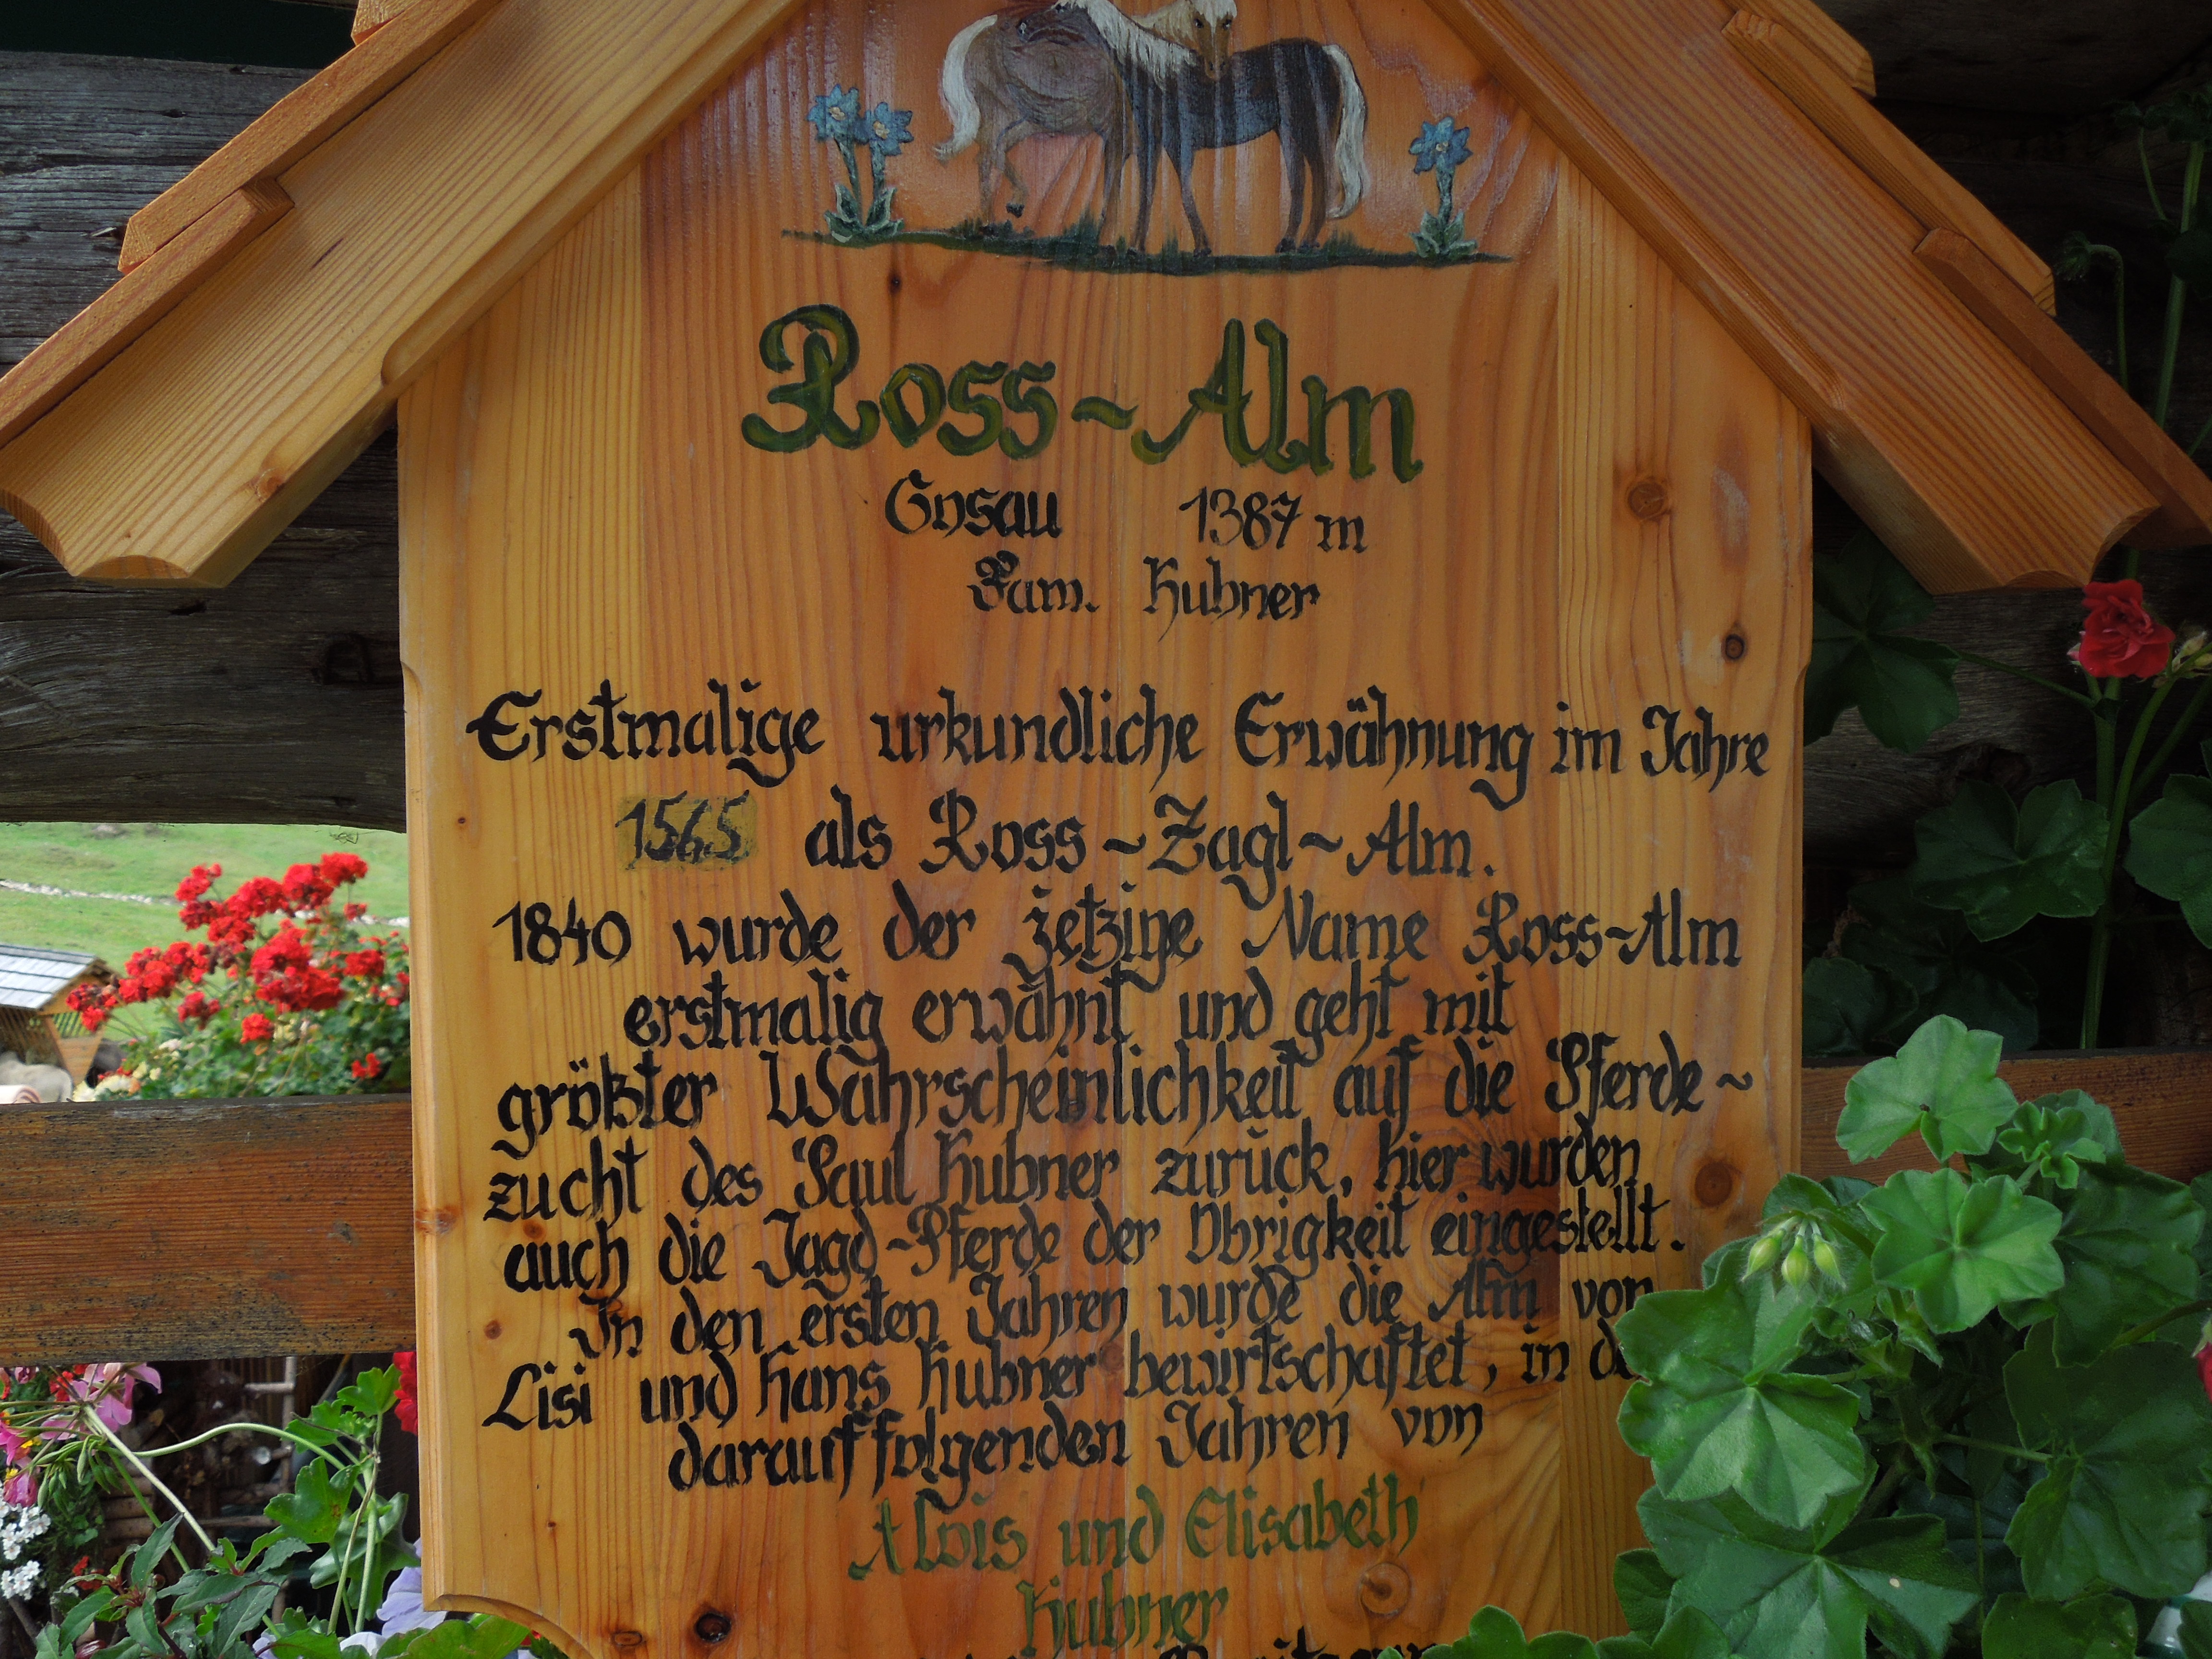 Ross-Alm
Gosau 1387 m
Fam. Hubner
Erstmalige urkundliche Erwähnung im Jahre
1565 als Ross-Zagl-Alm.
1840 wurde der jetzige Name Ross-Alm
erstmalig erwähnt und geht mit
größter Wahrscheinlichkeit auf die Pferde-
zucht des Paul Hubner zurück, hier wurden
auch die Jagd-Pferde der Obrigkeit eingestellt.
In den ersten Jahren wurde die Alm von
Lisi und Hans Hubner bewirtschaftet, in
darauffolgenden Jahren von
Alois und Elisabeth
Hubner